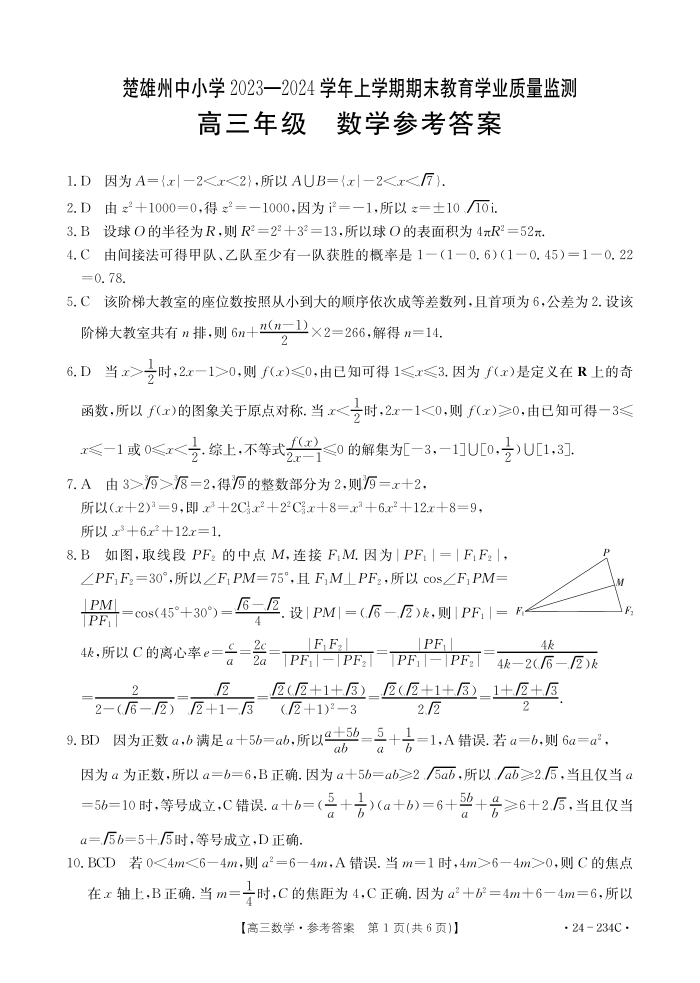 楚雄州中小学 2023—2024 学年上学期期末教育学业质量监测
高三年级　数学参考答案
1. D　因为 A={x|-2<x<2},所以 A∪B={x|-2<x<√7}.
2. D　由 z²+1000=0,得 z²=-1000,因为 i²=-1,所以 z=±10√10i.
3. B　设球 O 的半径为 R,则 R²=2²+3²=13,所以球 O 的表面积为 4πR²=52π.
4. C　由间接法可得甲队、乙队至少有一队获胜的概率是 1-(1-0.6)(1-0.45)=1-0.22
=0.78.
5. C　该阶梯大教室的座位数按照从小到大的顺序依次成等差数列,且首项为 6,公差为 2.设该
阶梯大教室共有 n 排,则 6n+n(n-1)/2×2=266,解得 n=14.
6. D　当 x>1/2时,2x-1>0,则 f(x)≤0,由已知可得 1≤x≤3.因为 f(x)是定义在 R 上的奇
函数,所以 f(x)的图象关于原点对称.当 x<1/2时,2x-1<0,则 f(x)≥0,由已知可得-3≤
x≤-1 或 0≤x<1/2.综上,不等式f(x)/(2x-1)≤0 的解集为[-3,-1]∪[0,1/2)∪[1,3].
7. A　由 3>∛9>∛8=2,得∛9的整数部分为 2,则∛9=x+2,
所以(x+2)³=9,即 x³+2C₃¹x²+2²C₃²x+8=x³+6x²+12x+8=9,
所以 x³+6x²+12x=1.
8. B　如图,取线段 PF₂ 的中点 M,连接 F₁M.因为|PF₁|=|F₁F₂|,
∠PF₁F₂=30°,所以∠F₁PM=75°,且 F₁M⊥PF₂,所以 cos∠F₁PM=
|PM|/|PF₁|=cos(45°+30°)=(√6-√2)/4.设|PM|=(√6-√2)k,则|PF₁|=
4k,所以 C 的离心率 e=c/a=2c/2a=|F₁F₂|/(|PF₁|-|PF₂|)=|PF₁|/(|PF₁|-|PF₂|)=4k/(4k-2(√6-√2)k)
=2/(2-(√6-√2))=√2/(√2+1-√3)=√2(√2+1+√3)/((√2+1)²-3)=√2(√2+1+√3)/(2√2)=(1+√2+√3)/2.
P
M
F₁
F₂
9. BD　因为正数 a,b 满足 a+5b=ab,所以(a+5b)/ab=5/a+1/b=1,A 错误.若 a=b,则 6a=a²,
因为 a 为正数,所以 a=b=6,B 正确.因为 a+5b=ab≥2√5ab,所以√ab≥2√5,当且仅当 a
=5b=10 时,等号成立,C 错误.a+b=(5/a+1/b)(a+b)=6+5b/a+a/b≥6+2√5,当且仅当
a=√5b=5+√5时,等号成立,D 正确.
10. BCD　若 0<4m<6-4m,则 a²=6-4m,A 错误.当 m=1 时,4m>6-4m>0,则 C 的焦点
在 x 轴上,B 正确.当 m=1/4时,C 的焦距为 4,C 正确.因为 a²+b²=4m+6-4m=6,所以
【高三数学·参考答案　第 1 页(共 6 页)】
·24-234C·